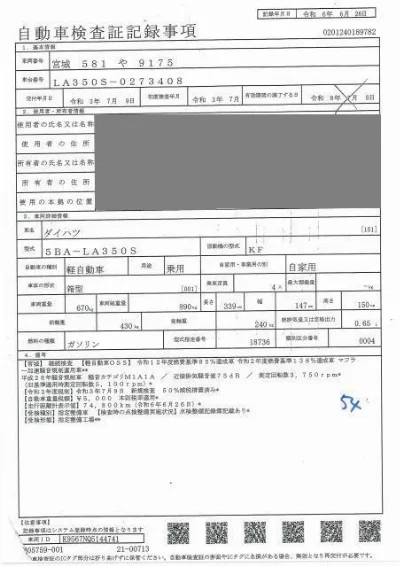 記録年月日 令和 6年 6月 26日
自動車検査証記録事項
0201240189782
1. 基本情報
車両番号 宮城 581 や 9175
車台番号 LA350S-0273408
交付年月日 令和 3年 7月 9日 初度検査年月 令和 3年 7月 有効期間の満了する日 令和 8年 7月 8日
2. 使用者・所有者情報
使用者の氏名又は名称
使用者の住所
所有者の氏名又は名称
所有者の住所
使用の本拠の位置
3. 車両詳細情報
車名 ダイハツ [161]
型式 5BA-LA350S 原動機の型式 KF
自動車の種別 軽自動車 用途 乗用 自家用・事業用の別 自家用
車体の形状 箱型 [001] 乗車定員 4人 最大積載量 -kg
車両重量 670kg 車両総重量 890kg 長さ 339cm 幅 147cm 高さ 150cm
前軸重 430kg 後軸重 240kg 総排気量又は定格出力 0.65 L
燃料の種類 ガソリン 型式指定番号 18736 類別区分番号 0004
4. 備考
【宮城】 継続検査 【軽自動車OSS】 令和12年度燃費基準85%達成車 令和2年度燃費基準138%達成車 マフラ
ー加速騒音規制適用車**
平成28年騒音規制車 騒音カテゴリM1A1A / 近接排気騒音値75dB / 測定回転数3,750rpm**
(旧基準適用時測定回転数5,100rpm)*
【令和3年度税制】令和3年7月9日 新規検査 50%減税措置済み*
【自動車重量税額】¥5,000 本則税率適用*
【走行距離計表示値】74,800km (令和6年6月26日)*
【受検種別】指定整備車 【検査時の点検整備実施状況】点検整備記録簿記載あり*
【受検形態】指定整備工場**
54
【注意事項】
記録事項はシステム登録時点の情報となります
車両ID E9567NQ5144741
005759-001 21-00713